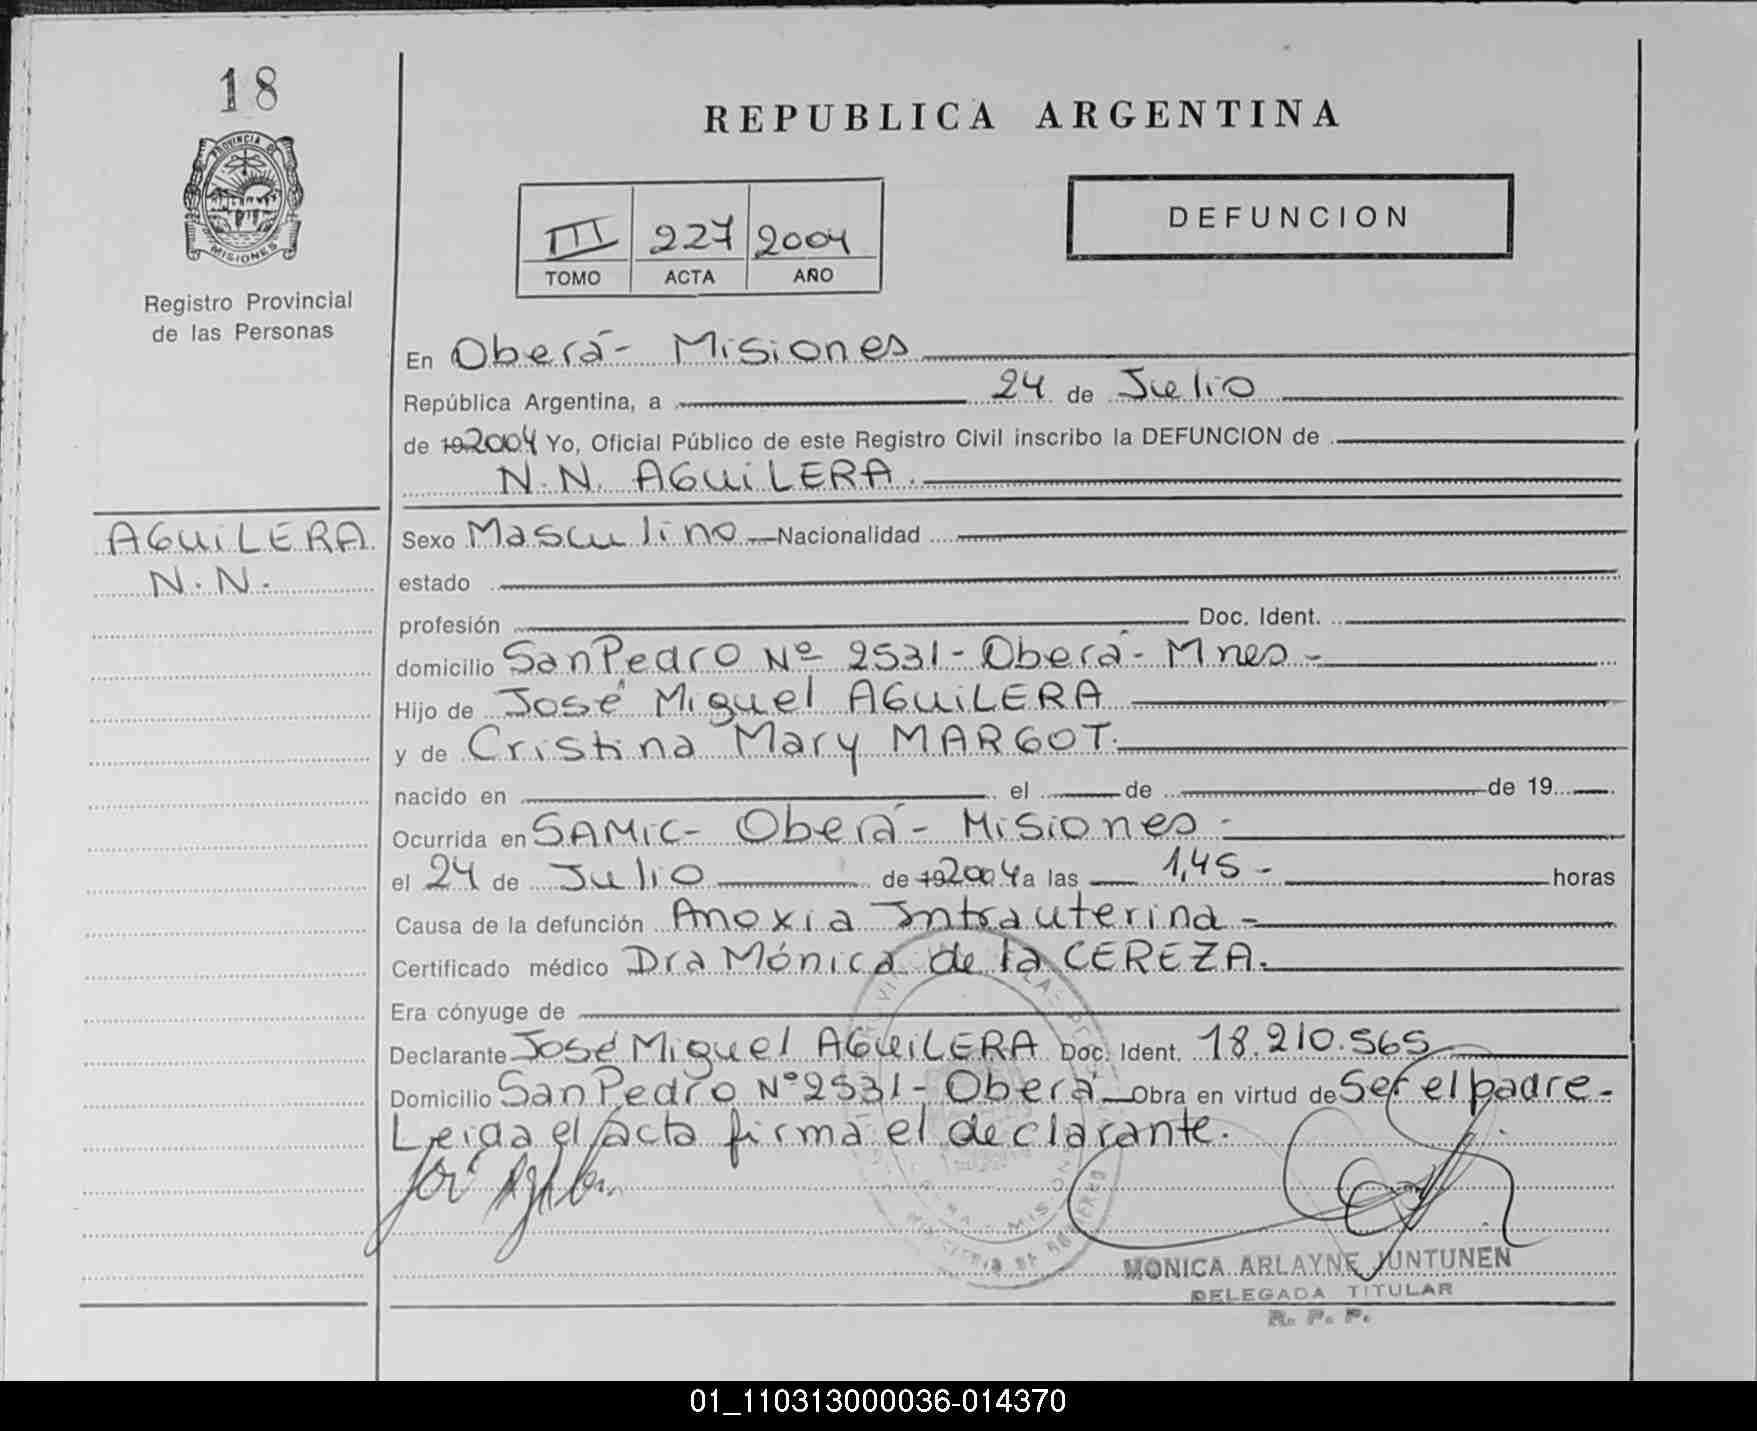 18
PROVINCIA DE
MISIONES
Registro Provincial
de las Personas
REPUBLICA ARGENTINA
III 227 2004
TOMO ACTA AÑO
DEFUNCION
En Oberá - Misiones
República Argentina, a 24 de Julio
de 19 2004 Yo, Oficial Público de este Registro Civil inscribo la DEFUNCION de
N.N. AGUILERA.
AGUILERA
N.N.
Sexo Masculino - Nacionalidad
estado
profesión Doc. Ident.
domicilio San Pedro Nº 2531 - Oberá - Mnes -
Hijo de José Miguel AGUILERA
y de Cristina Mary MARGOT.
nacido en el de de 19
Ocurrida en SAMIC - Oberá - Misiones -
el 24 de Julio de 19 2004 a las 1,45 - horas
Causa de la defunción Anoxia Intrauterina -
Certificado médico Dra Mónica de la CEREZA.
Era cónyuge de
Declarante José Miguel AGUILERA Doc. Ident. 18.210.565
Domicilio San Pedro N° 2531 - Oberá Obra en virtud de Ser el padre -
Leida el acta firma el declarante.
MONICA ARLAYNE JUNTUNEN
DELEGADA TITULAR
R. P. P.
01_110313000036-014370